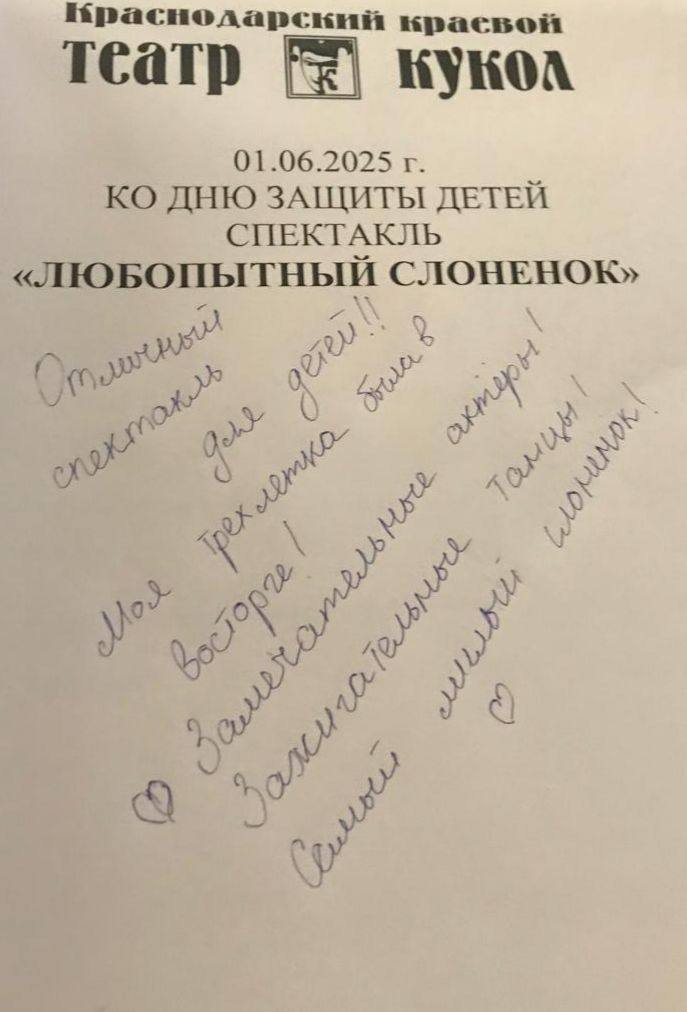 Краснодарский краевой
театр К кукол
01.06.2025 г.
КО ДНЮ ЗАЩИТЫ ДЕТЕЙ
СПЕКТАКЛЬ
«ЛЮБОПЫТНЫЙ СЛОНЕНОК»
Отличный
спектакль
для детей!!
Моя трехлетка была в
восторге!
Замечательные актёры!
Зажигательные танцы!
Самый милый слоненок!